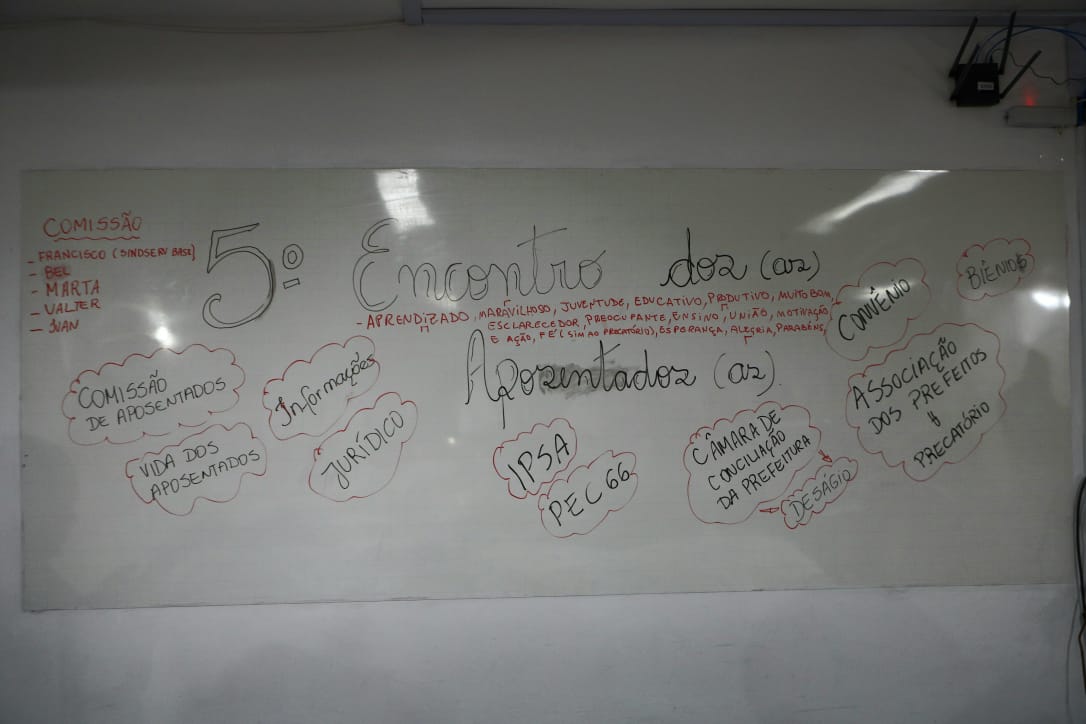 COMISSÃO
- FRANCISCO (SINDSERV BASE)
- BEL
- MARTA
- VALTER
- IVAN
5º Encontro dos (as)
- APRENDIZADO, MARAVILHOSO, JUVENTUDE, EDUCATIVO, PRODUTIVO, MUITO BOM,
ESCLARECEDOR, PREOCUPANTE, ENSINO, UNIÃO, MOTIVAÇÃO
E AÇÃO, FÉ (SIM AO PRECATÓRIO), ESPERANÇA, ALEGRIA, PARABÉNS,
Aposentados (as).
COMISSÃO
DE APOSENTADOS
VIDA DOS
APOSENTADOS
Informações
JURÍDICO
IPSA
PEC 66
CÂMARA DE
CONCILIAÇÃO
DA PREFEITURA
DESÁGIO
CONVÊNIO
BIÊNIOS
ASSOCIAÇÃO
DOS PREFEITOS
PRECATÓRIO